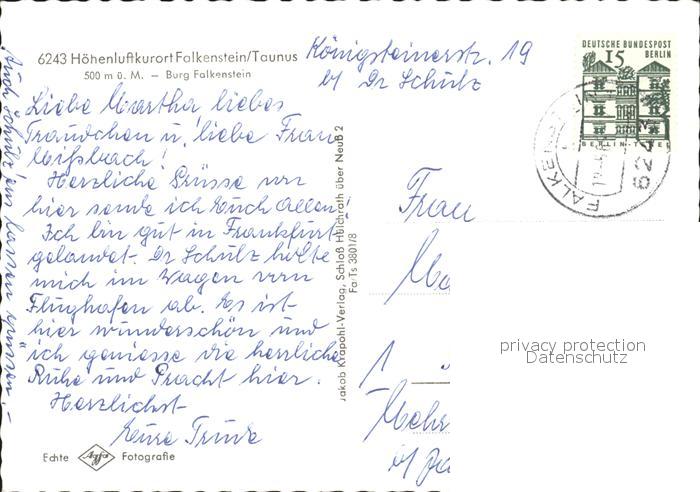 6243 Höhenluftkurort Falkenstein/Taunus
500 m ü. M. — Burg Falkenstein
Königsteinerstr. 19
b/ Dr Schulz
Liebe Martha liebes
Traudchen u. liebe Frau
Mißbach!
Herzliche Grüsse von
hier sende ich Euch Allen!
Ich bin gut in Frankfurt
gelandet. Dr Schulz holte
mich im Wagen vom
Flughafen ab. Es ist
hier wunderschön und
ich geniesse die herrliche
Ruhe und Pracht hier.
Herzlichst
Eure Trude
Auch Schulz'ens lassen grüssen!
Echte Agfa Fotografie
Jakob Krapohl-Verlag, Schloß Hülchrath über Neuß 2
Fa-Ts 3801/8
DEUTSCHE BUNDESPOST
BERLIN
15
BERLIN-TEGEL
FALKEN
624
Frau
Ma
1
privacy protection
Datenschutz